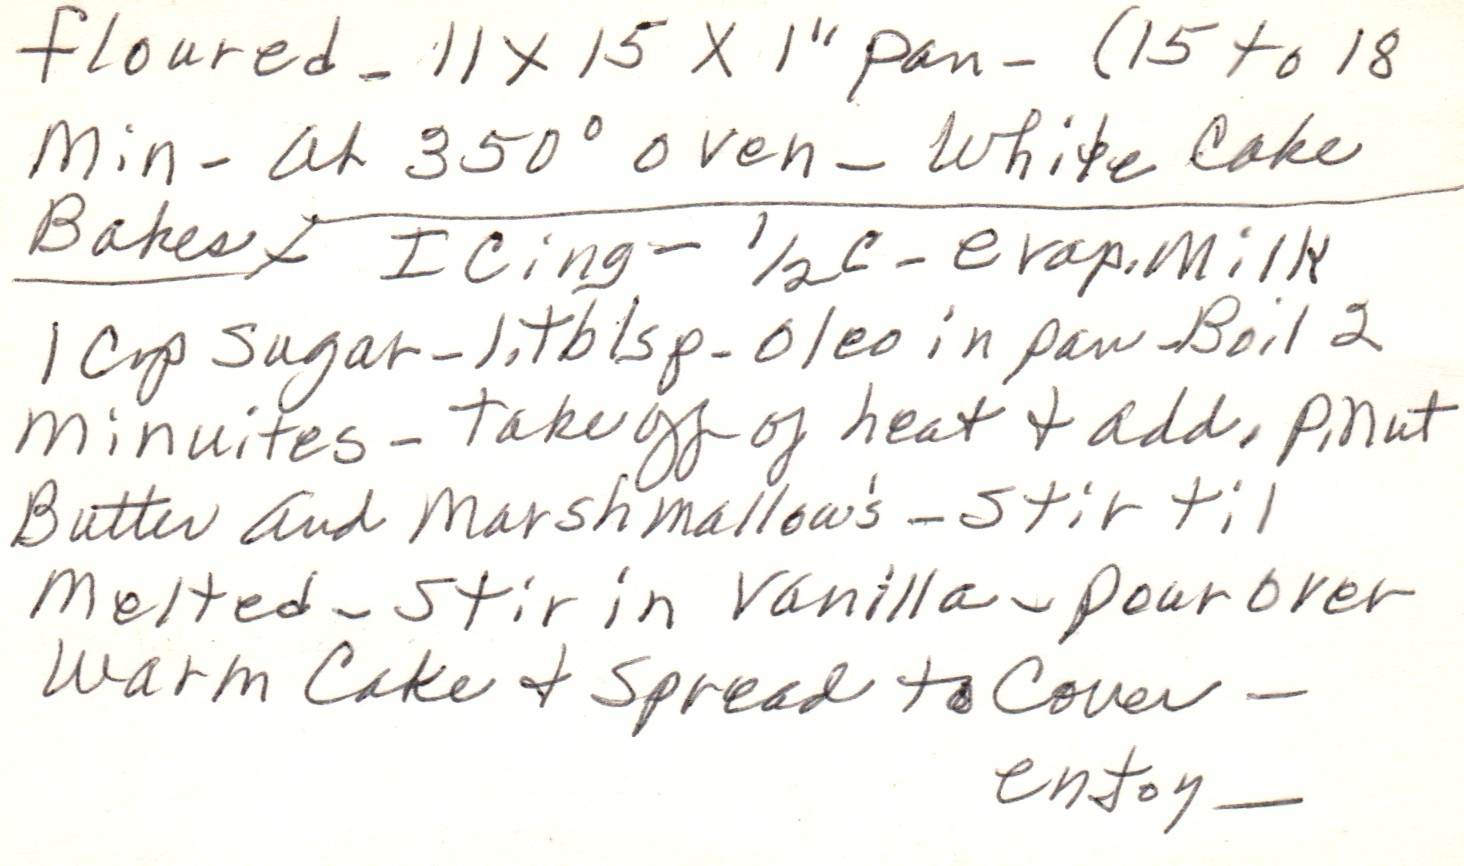 floured - 11 X 15 X 1" pan - (15 to 18
Min - at 350° oven - White Cake
Bakes) Icing - 1/2 C - evap. Milk
1 Cup Sugar - 1. tblsp - Oleo in pan - Boil 2
Minuites - take off of heat & add. P.Nut
Butter and Marshmallow's - Stir til
Melted - Stir in Vanilla - pour over
Warm Cake & Spread to Cover -
enjoy -